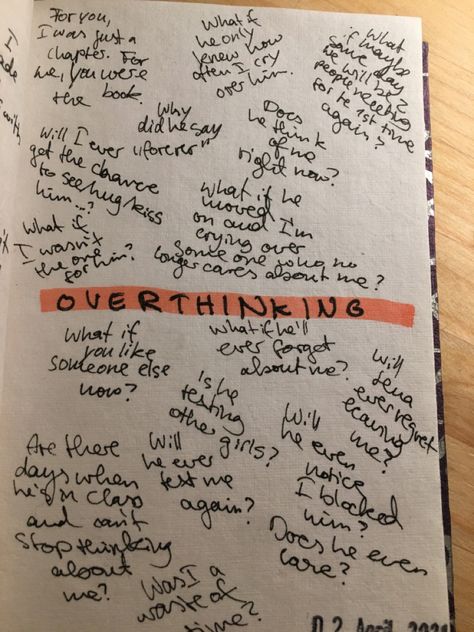 For you,
I was just a
chapter. For
me, you were
the book.
What if
he only
knew how
often I cry
over him.
What
if maybe
some day
we will be 2
people meeting
for te 1st time
again?
Why
did he say
"forever"
Does
he think
of me
right now?
Will I ever
get the chance
to see/hug/kiss
him...?
What if he
moved
on and I'm
crying over
someone who no
longer cares about me?
What if
I wasn't
the one
for him?
OVERTHINKING
What if
you like
someone else
now?
What if he'll
ever forget
about me?
Will
ever regret
leaving
me?
Is he
texting
other
girls?
Will
he even
notice
I blocked
him?
Are there
days when
he's in class
and can't
stop thinking
about
me?
Will
he ever
text me
again?
Does he even
care?
Was I a
waste of
time?
0 2. April 202